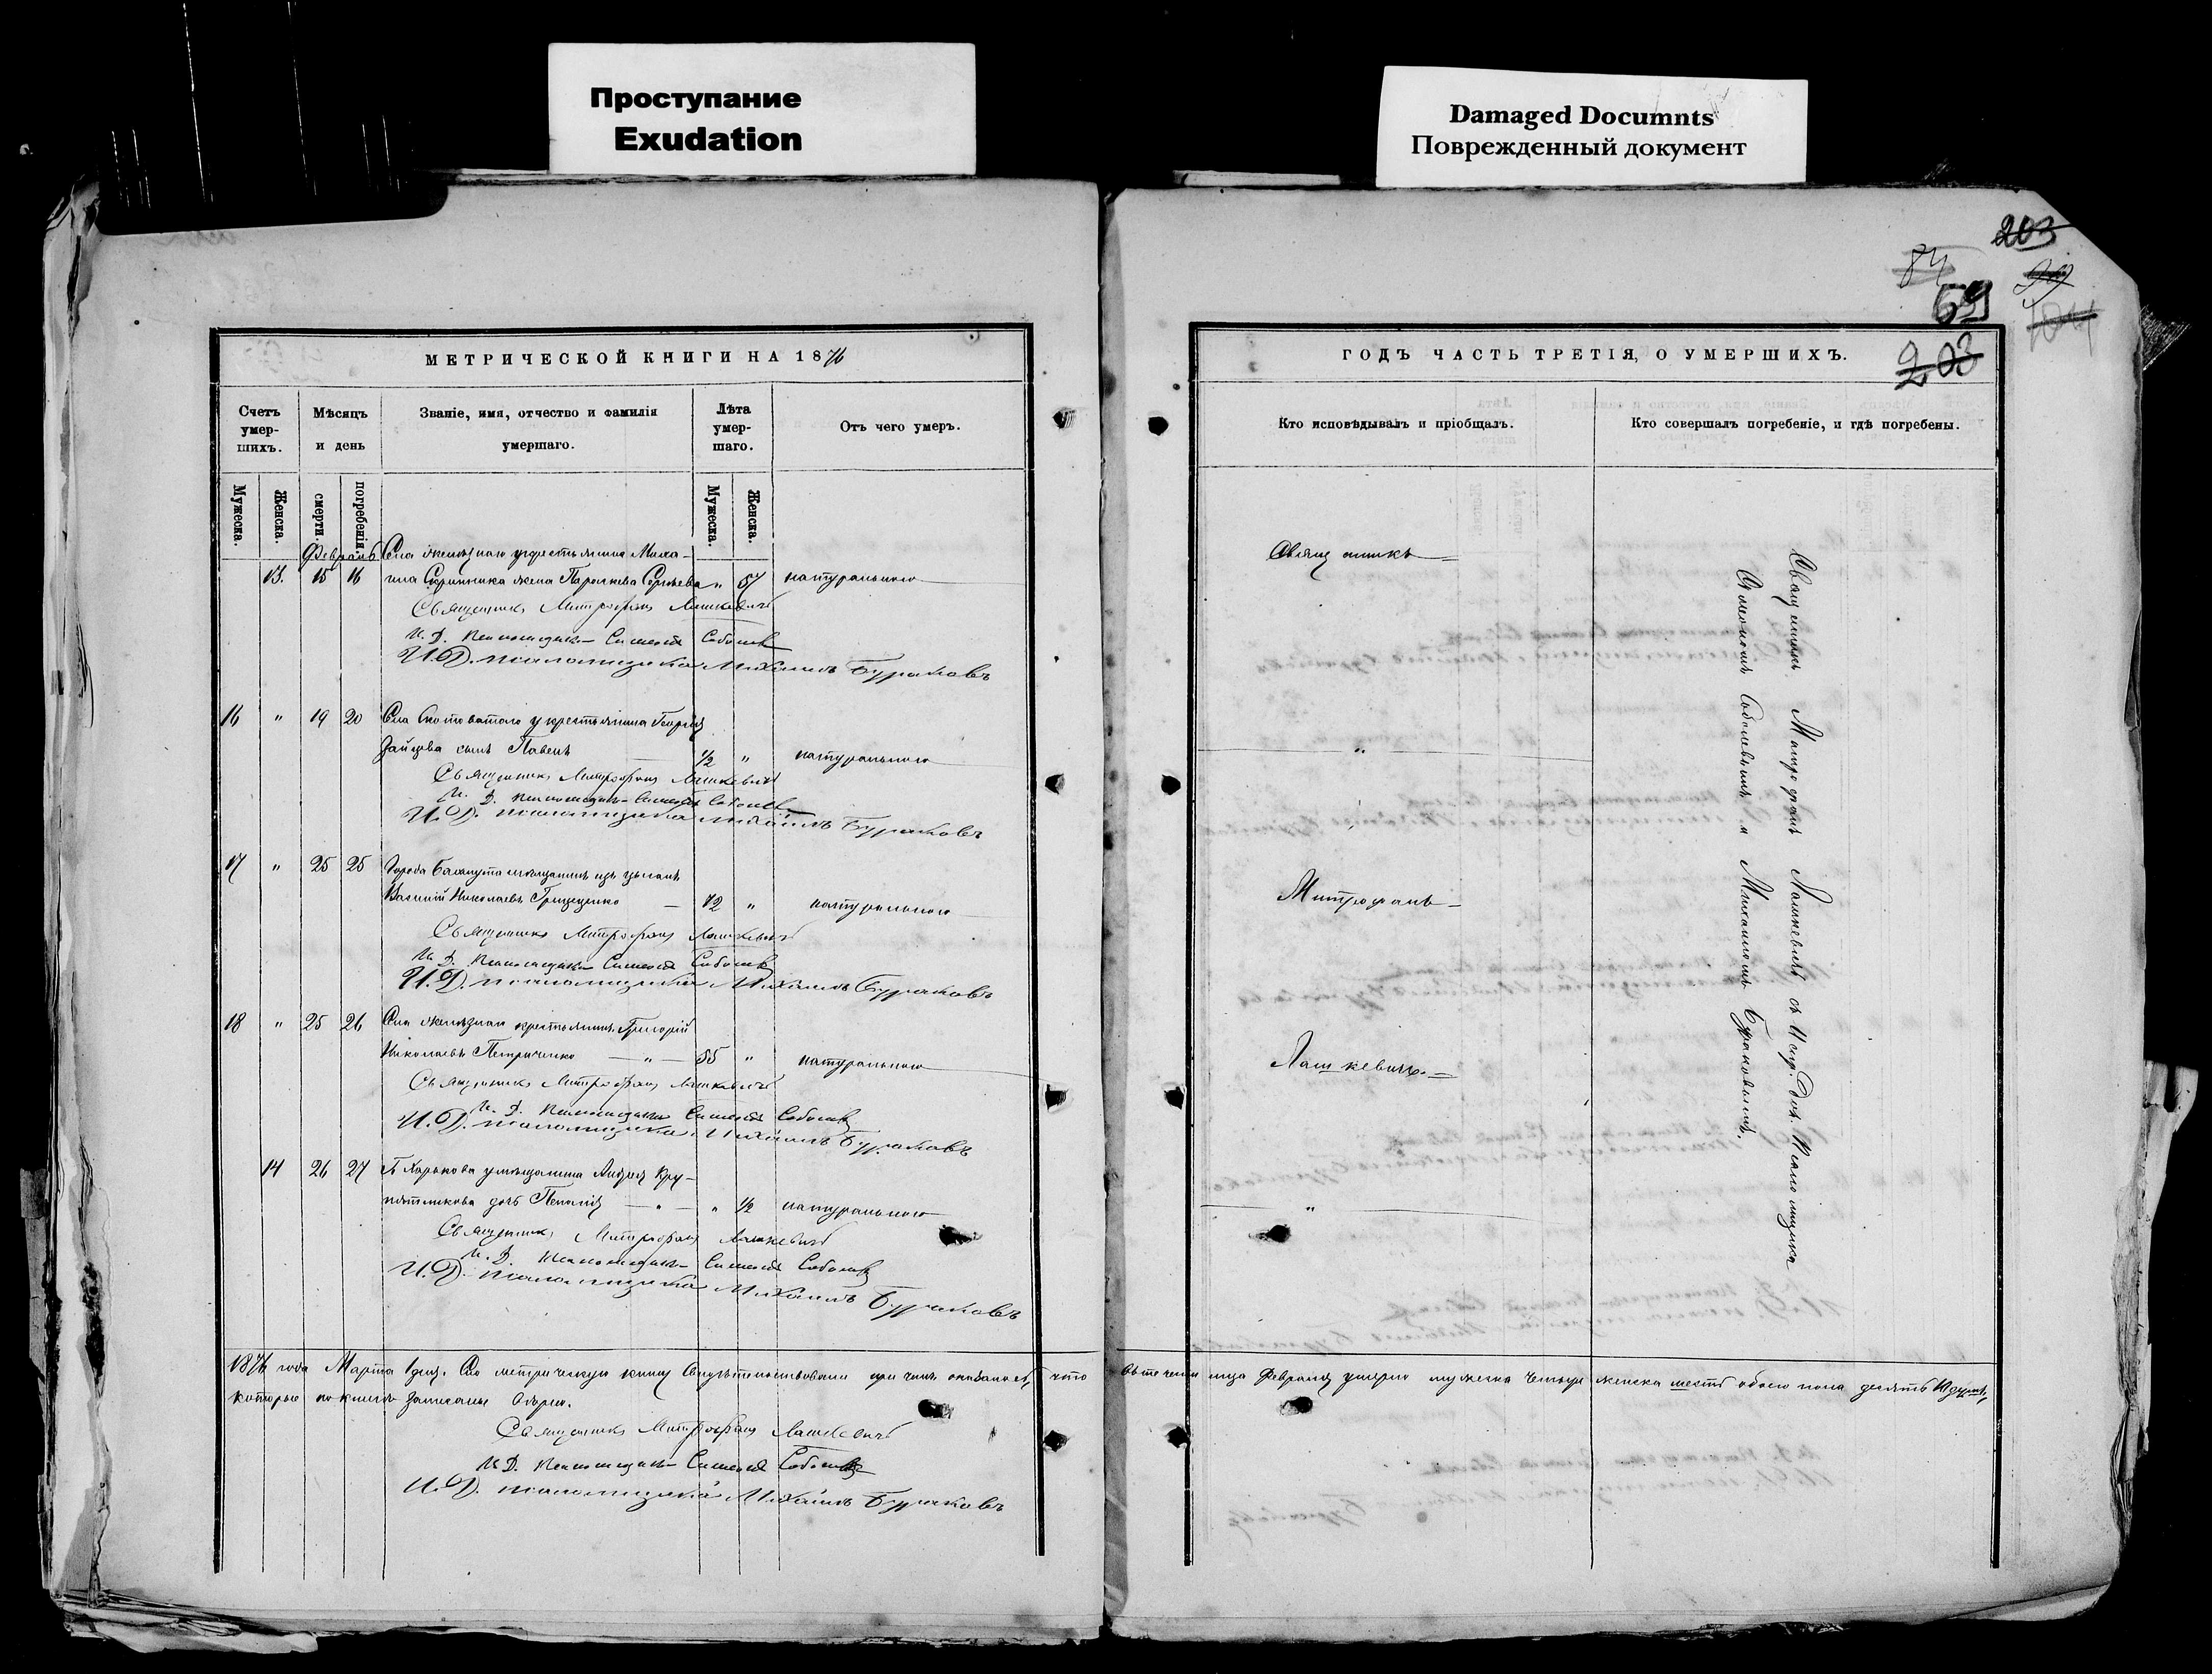 Проступание
Exudation
Damaged Documnts
Поврежденный документ
203
84
99
69
104
203
МЕТРИЧЕСКОЙ КНИГИ НА 1876
Счетъ умер-шихъ.
Мѣсяцъ и день
Званіе, имя, отчество и фамилія умершаго.
Лѣта умер-шаго.
Отъ чего умеръ.
Мужеска.
Женска.
смерти.
погребенія.
Мужеска.
Женска.
Февраль
Села крестьянина Миха-
13. 15 16 жена Параскева " 57 натурального
Священникъ Митрофанъ Лашкевичъ
И. Д. Псаломщика Симеонъ Соболевъ
И. Д. псаломщика Михаилъ Бураковъ
16 " 19 20 Села у крестьянина Георгія
Зайцева сынъ Павелъ 1/2 " натурального
Священникъ Митрофанъ Лашкевичъ
И. Д. Псаломщика Симеонъ Соболевъ
И. Д. псаломщика Михаилъ Бураковъ
17 " 25 25 Города Бахмута мѣщанинъ изъ цыганъ
Василій Николаевъ Грищенко — 72 " натурального
Священникъ Митрофанъ Лашкевичъ
И. Д. Псаломщика Симеонъ Соболевъ
И. Д. псаломщика Михаилъ Бураковъ
18 " 25 26 Села крестьянинъ Григорій
Николаевъ Петриченко — " — 55 " натурального
Священникъ Митрофанъ Лашкевичъ
И. Д. Псаломщика Симеонъ Соболевъ
И. Д. псаломщика Михаилъ Бураковъ
14 26 27 Г. Харькова у мѣщанина Андрея Кру-
дочь — " — " 1/2 натурального
Священникъ Митрофанъ Лашкевичъ
И. Д. Псаломщика Симеонъ Соболевъ
И. Д. псаломщика Михаилъ Бураковъ
1876 года Марта 1 дня. Сію метрическую книгу свидѣтельствовали при чемъ оказалось, что
которые по книгѣ записаны вѣрно.
Священникъ Митрофанъ Лашкевичъ
И. Д. Псаломщика Симеонъ Соболевъ
И. Д. псаломщика Михаилъ Бураковъ
ГОДЪ ЧАСТЬ ТРЕТІЯ, О УМЕРШИХЪ.
Кто исповѣдывалъ и пріобщалъ.
Кто совершалъ погребеніе, и гдѣ погребены.
Священникъ —
"
Митрофанъ —
Лашкевичъ. —
"
Священникъ Митрофанъ Лашкевичъ съ Испр. Дол. Псаломщика
Симеономъ Соболевымъ и Михаиломъ Бураковымъ.
въ теченіи мца Февраля умерло мужеска четыре женска шесть обоего пола десять душъ,